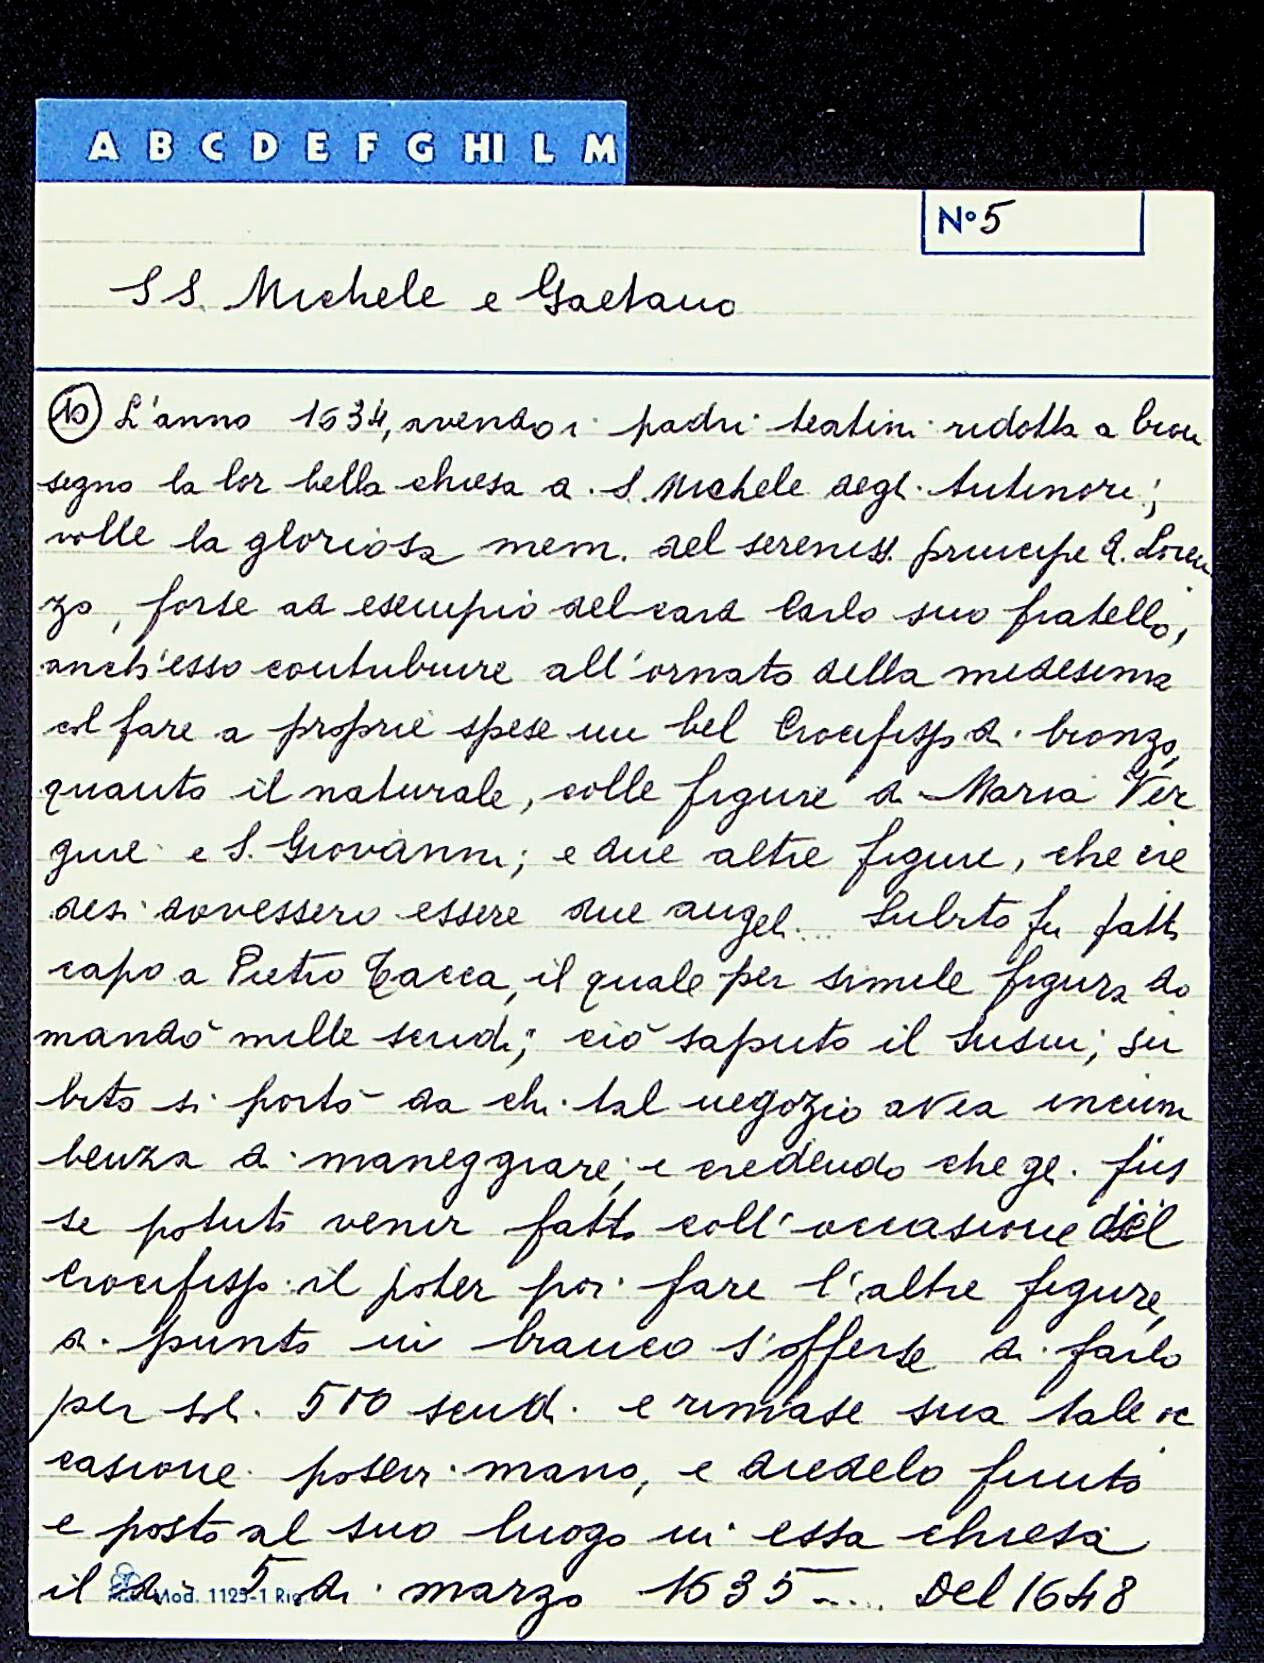 A B C D E F G HI L M
N° 5
SS. Michele e Gaetano
10 L'anno 1634, avendo i padri teatini ridotta a buon
segno la lor bella chiesa di S. Michele degli Antinori;
volle la gloriosa mem. del sereniss. principe d. Loren
zo, forse ad esempio del card Carlo suo fratello,
anch'esso contribuire all'ornato della medesima
col fare a proprie spese un bel Crocifisso di bronzo,
quanto il naturale, colle figure di Maria Ver
gine e S. Giovanni; e due altre figure, che cre
desi dovessero essere due angeli... Subito fu fatto
capo a Pietro Tacca, il quale per simile figura do
mandò mille scudi; ciò saputo il Susini, su
bito si portò da chi tal negozio avea incum
benza di maneggiare; e credendo che gli fus
se potuto venir fatto coll'occasione del
Crocifisso il poter poi fare l'altre figure,
di punto in bianco s'offerse di farlo
per soli 500 scudi e rimase sua tale oc
casione. posevi mano, e diedelo finito
e posto al suo luogo in essa chiesa
il dì 5 di marzo 1635.... Del 1648
Mod. 1129-1 Rig.